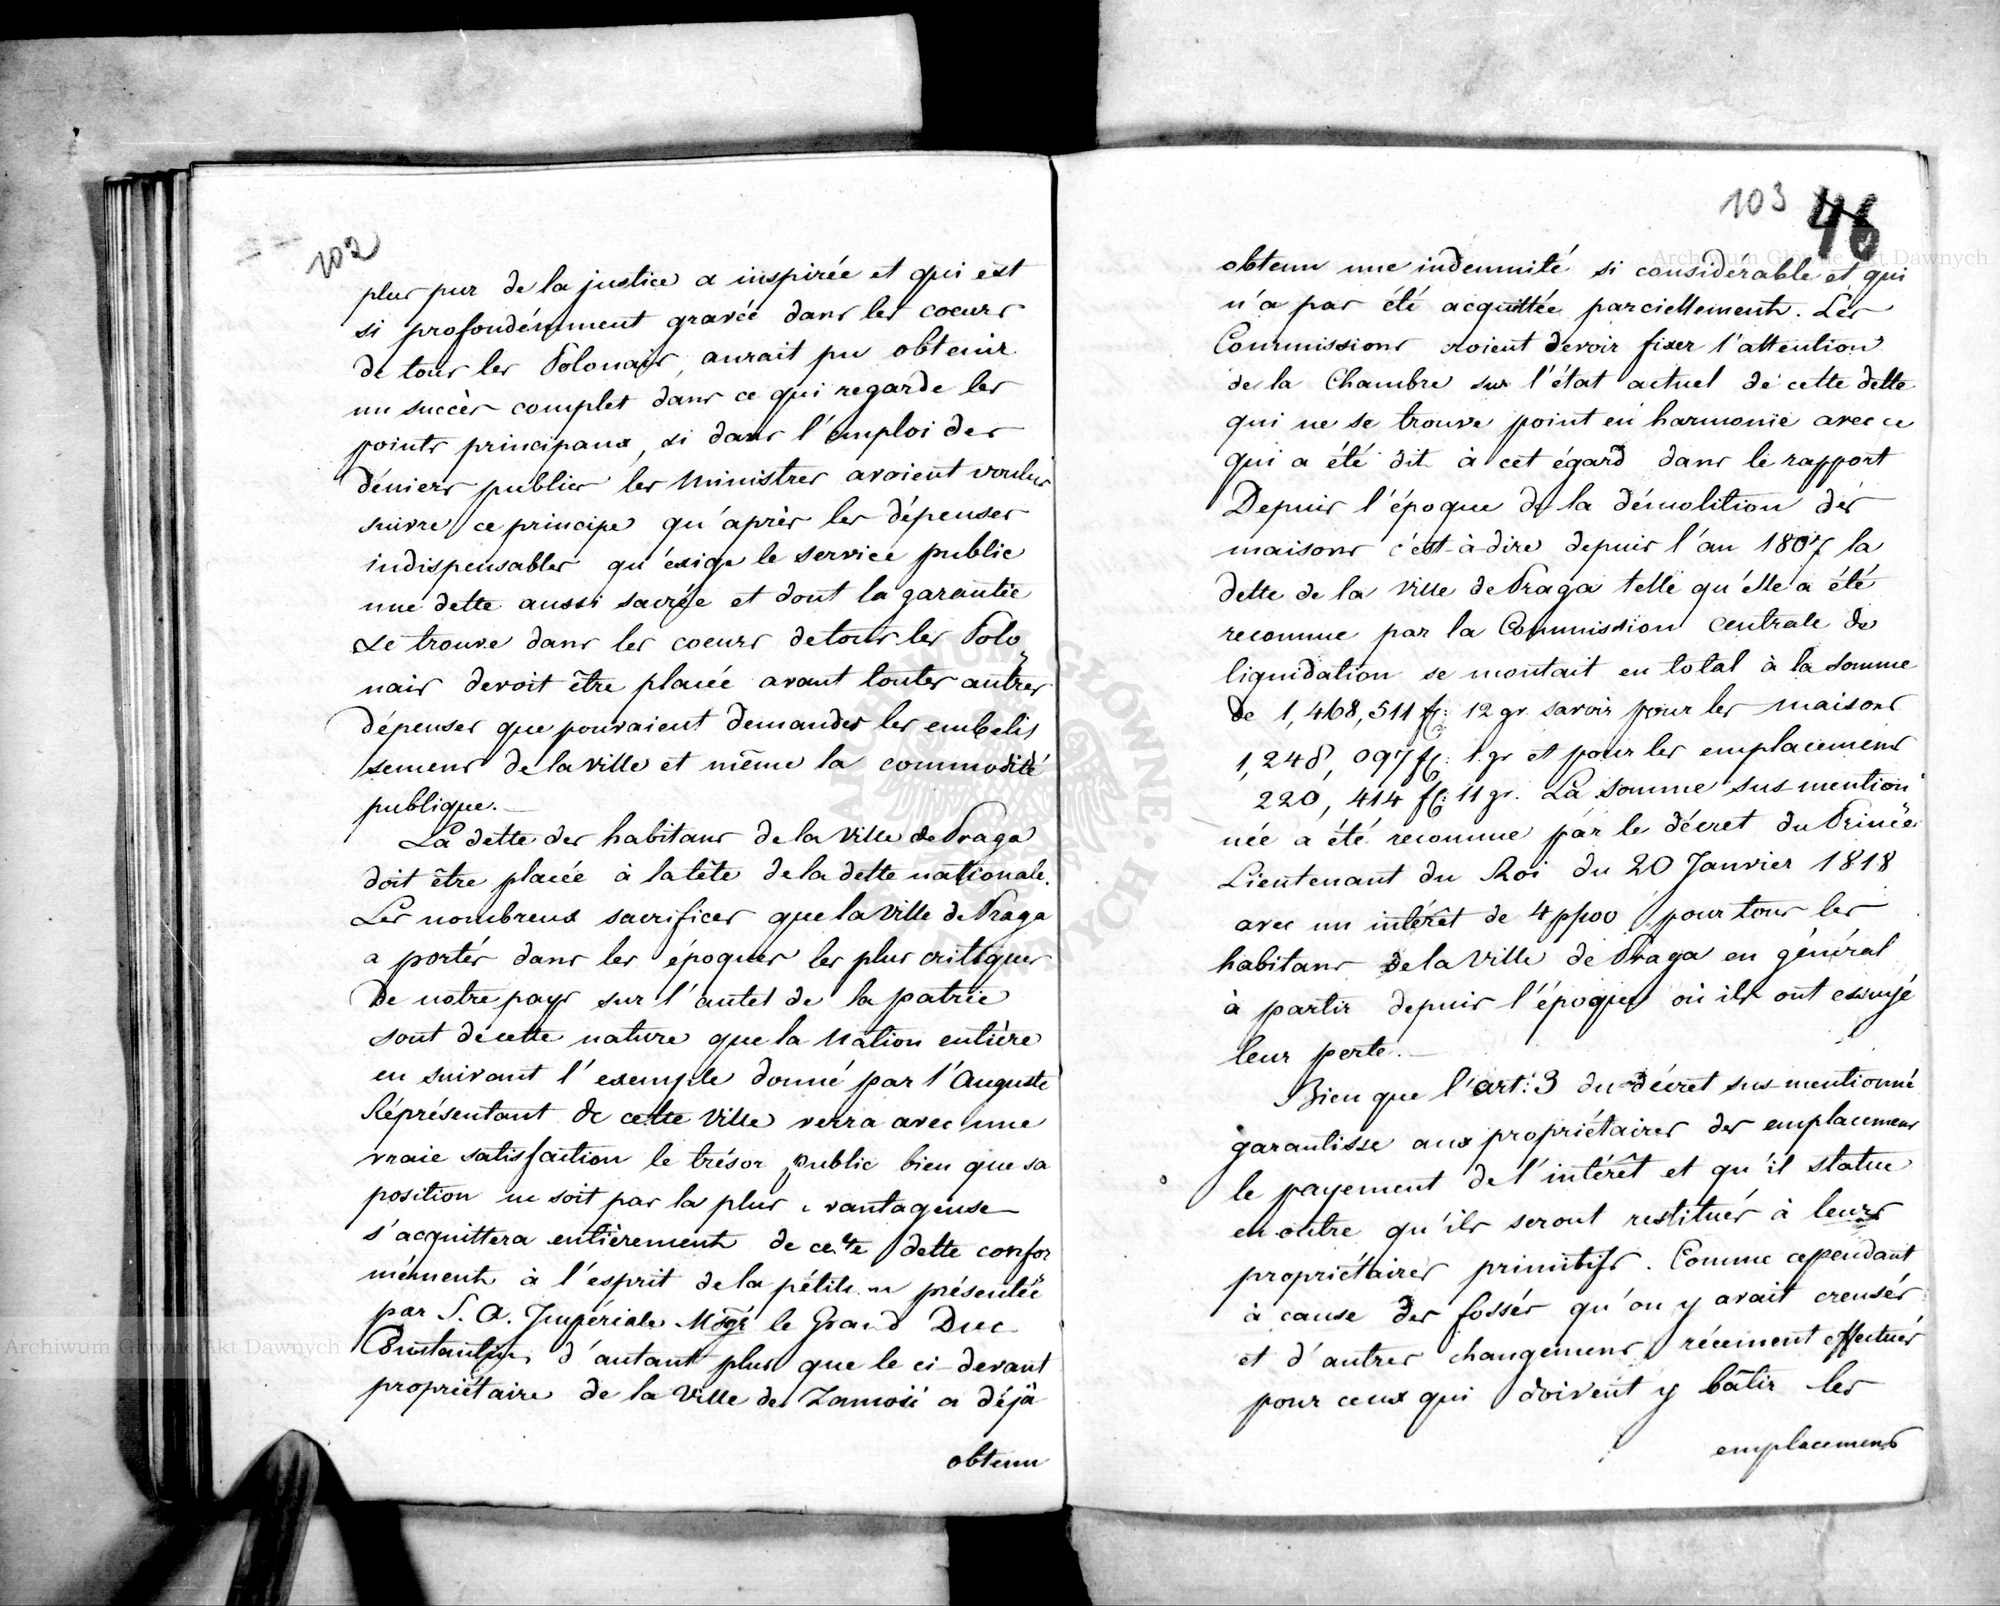 102
plus pur de la justice a inspirée et qui est
si profondémment gravée dans les coeurs
de tous les Polonais, aurait pu obtenir
un succès complet dans ce qui regarde les
points principaux, si dans l'emploi des
déniers publics les Ministres avoient voulus
suivre ce principe qu'après les dépenses
indispensables qu'éxige le service public
une dette aussi sacrée et dont la garantie
se trouve dans les coeurs de tous les Polo
nais devoit être placée avant toutes autres
dépenses que pouvaient demander les embelis
semens de la ville et même la commodité
publique.
La dette des habitans de la Ville de Praga
doit être placée à la tête de la dette nationale.
Les nombreux sacrifices que la Ville de Praga
a portés dans les époques les plus critiques
de notre pays sur l'autel de la patrie
sont de cette nature que la Nation entière
en suivant l'exemple donné par l'Auguste
Réprésentant de cette Ville verra avec une
vraie satisfaction le trésor public bien que sa
position ne soit pas la plus avantageuse
s'acquittera entièrement de cette dette confor
mément à l'esprit de la pétition présentée
par S. A. Impériale Msgr le Grand Duc
Constantin d'autant plus que le ci-devant
propriétaire de la Ville de Zamość a déjà
obtenu
103 46
obtenu une indemnité si considerable et qui
n'a pas été acquittée parciellement. Les
Commissions croient devoir fixer l'attention
de la Chambre sur l'état actuel de cette dette
qui ne se trouve point en harmonie avec ce
qui a été dit à cet égard dans le rapport
Depuis l'époque de la démolition des
maisons c'est-à-dire depuis l'an 1807 la
dette de la Ville de Praga telle qu'elle a été
reconnue par la Commission Centrale de
liquidation se montait en total à la somme
de 1,468,511 fl: 12 gr savoir pour les maisons
1,248,097 fl: 1 gr et pour les emplacemens
220,414 fl: 11 gr. La somme sus mention
née a été reconnue par le décret du Prince
Lieutenant du Roi du 20 Janvier 1818
avec un intérêt de 4 pp00 pour tous les
habitans de la Ville de Praga en général
à partir depuis l'époque où ils ont essuyé
leur perte.
Bien que l'art: 3 du décret sus-mentionné
garantisse aux propriétaires des emplacemens
le payement de l'intérêt et qu'il statue
en outre qu'ils seront restitués à leurs
propriétaires primitifs. Comme cependant
à cause des fossés qu'on y avait creusés
et d'autres changemens récement effectués
pour ceux qui doivent y bâtir les
emplacemens
Archiwum Główne Akt Dawnych
Archiwum Główne Akt Dawnych
ARCHIWUM GŁÓWNE AKT DAWNYCH